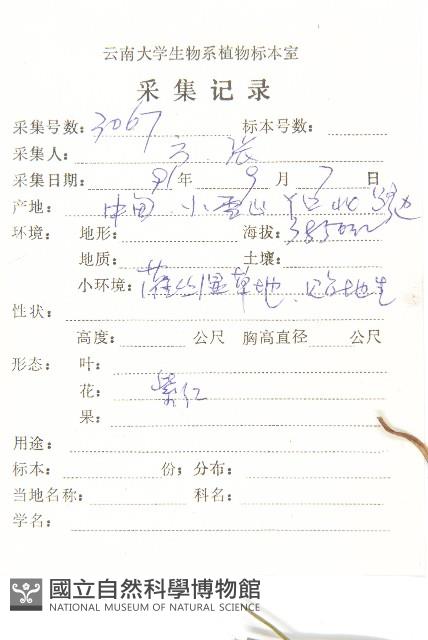 云南大学生物系植物标本室
采集记录
采集号数：3067 标本号数：
采集人：方、张
采集日期：91年9月7日
产地：中甸 小雪山丫口北
环境：地形： 海拔：3850m
地质： 土壤：
小环境：湿草地、贴地生
性状：
高度： 公尺 胸高直径 公尺
形态：叶：
花：紫红
果：
用途：
标本： 份；分布：
当地名称： 科名：
学名：
國立自然科學博物館
NATIONAL MUSEUM OF NATURAL SCIENCE